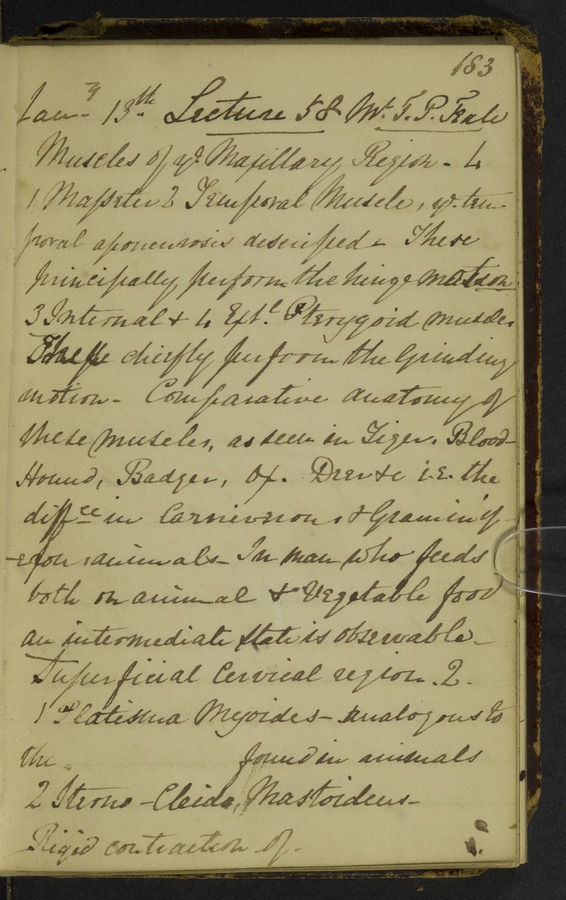 183
Jany 13th Lecture 58 Mr. T. P. Teale
Muscles of ye. Maxillary Region - 4
1 Masseter 2 Temporal Muscle, ye. tem-
poral aponeurosis described - These
principally perform the hinge motion
3 Internal & 4 Extl. Pterygoid muscles
These chiefly perform the Grinding
motion - Comparative anatomy of
these muscles, as seen in Tiger, Blood-
Hound, Badger, Ox. Deer &c i.e. the
diffce in Carniverous, & Graminif-
-erous animals - In man who feeds
both on animal & Vegetable food
an intermediate state is observable -
Superficial Cervical region. 2.
1 Platisma Myoides - analogous to
the found in animals
2 Sterno - Cleido, Mastoideus -
Rigid contraction of -